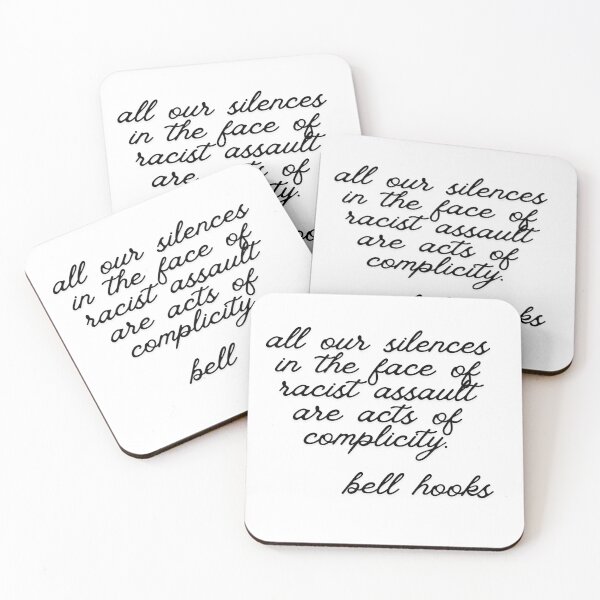 all our silences
in the face of
racist assault
are of
all our silences
in the face of
racist assault
are acts of
complicity.
all our silences
in the face of
racist assault
are acts of
complicity
bell
all our silences
in the face of
racist assault
are acts of
complicity.
bell hooks